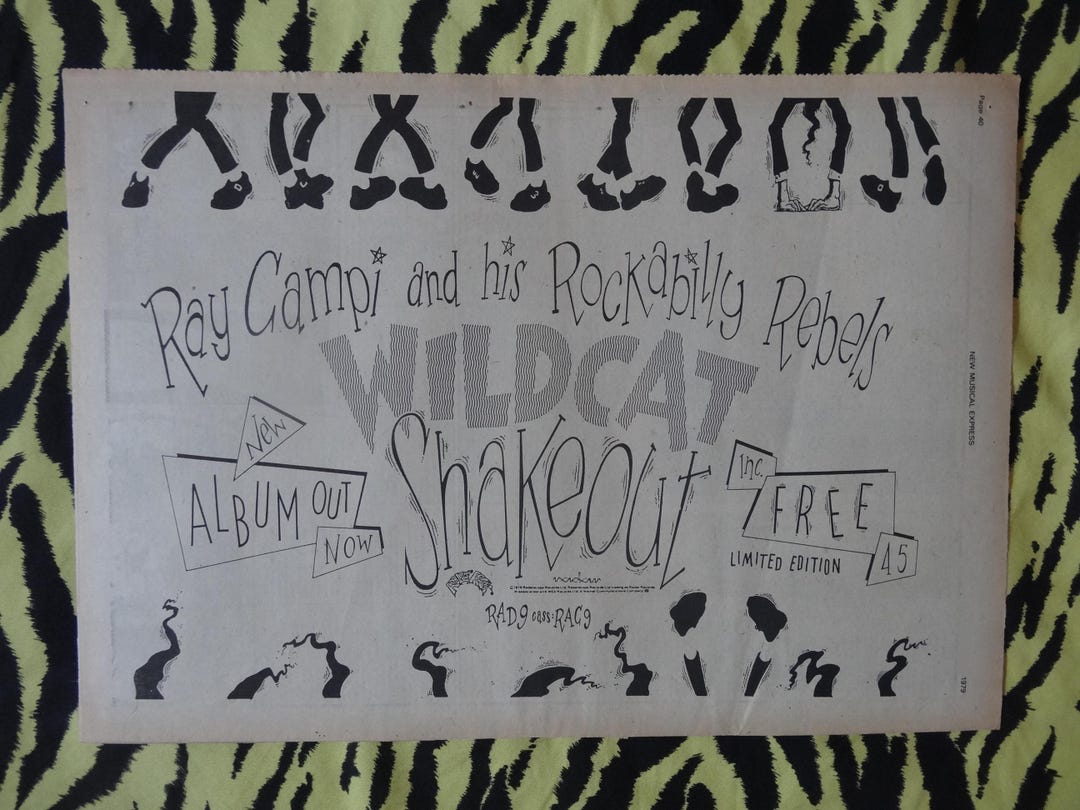 Page 40
Ray Campi and his Rockabilly Rebels
WILDCAT
Shakeout
NEW
ALBUM OUT
NOW
Inc.
FREE
45
LIMITED EDITION
radar
RAD9 cass: RAC9
NEW MUSICAL EXPRESS
1979